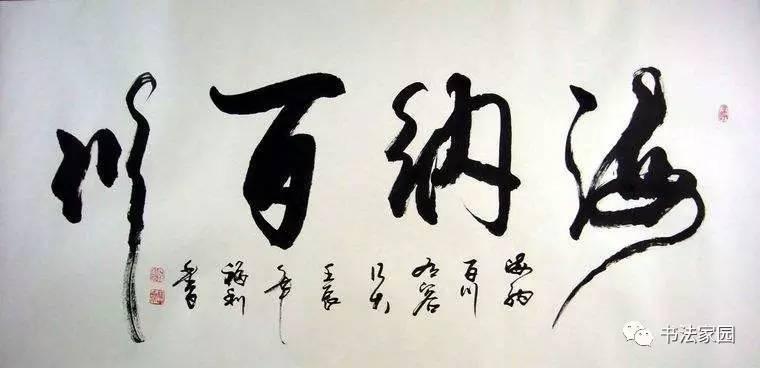 海纳百川
海纳
百川
有容
乃大
壬辰
年
福利
書
书法家园